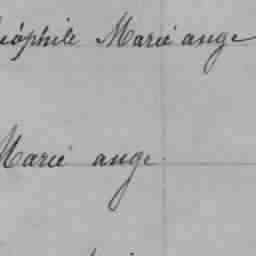 éóphile Marie ange
Marie ange